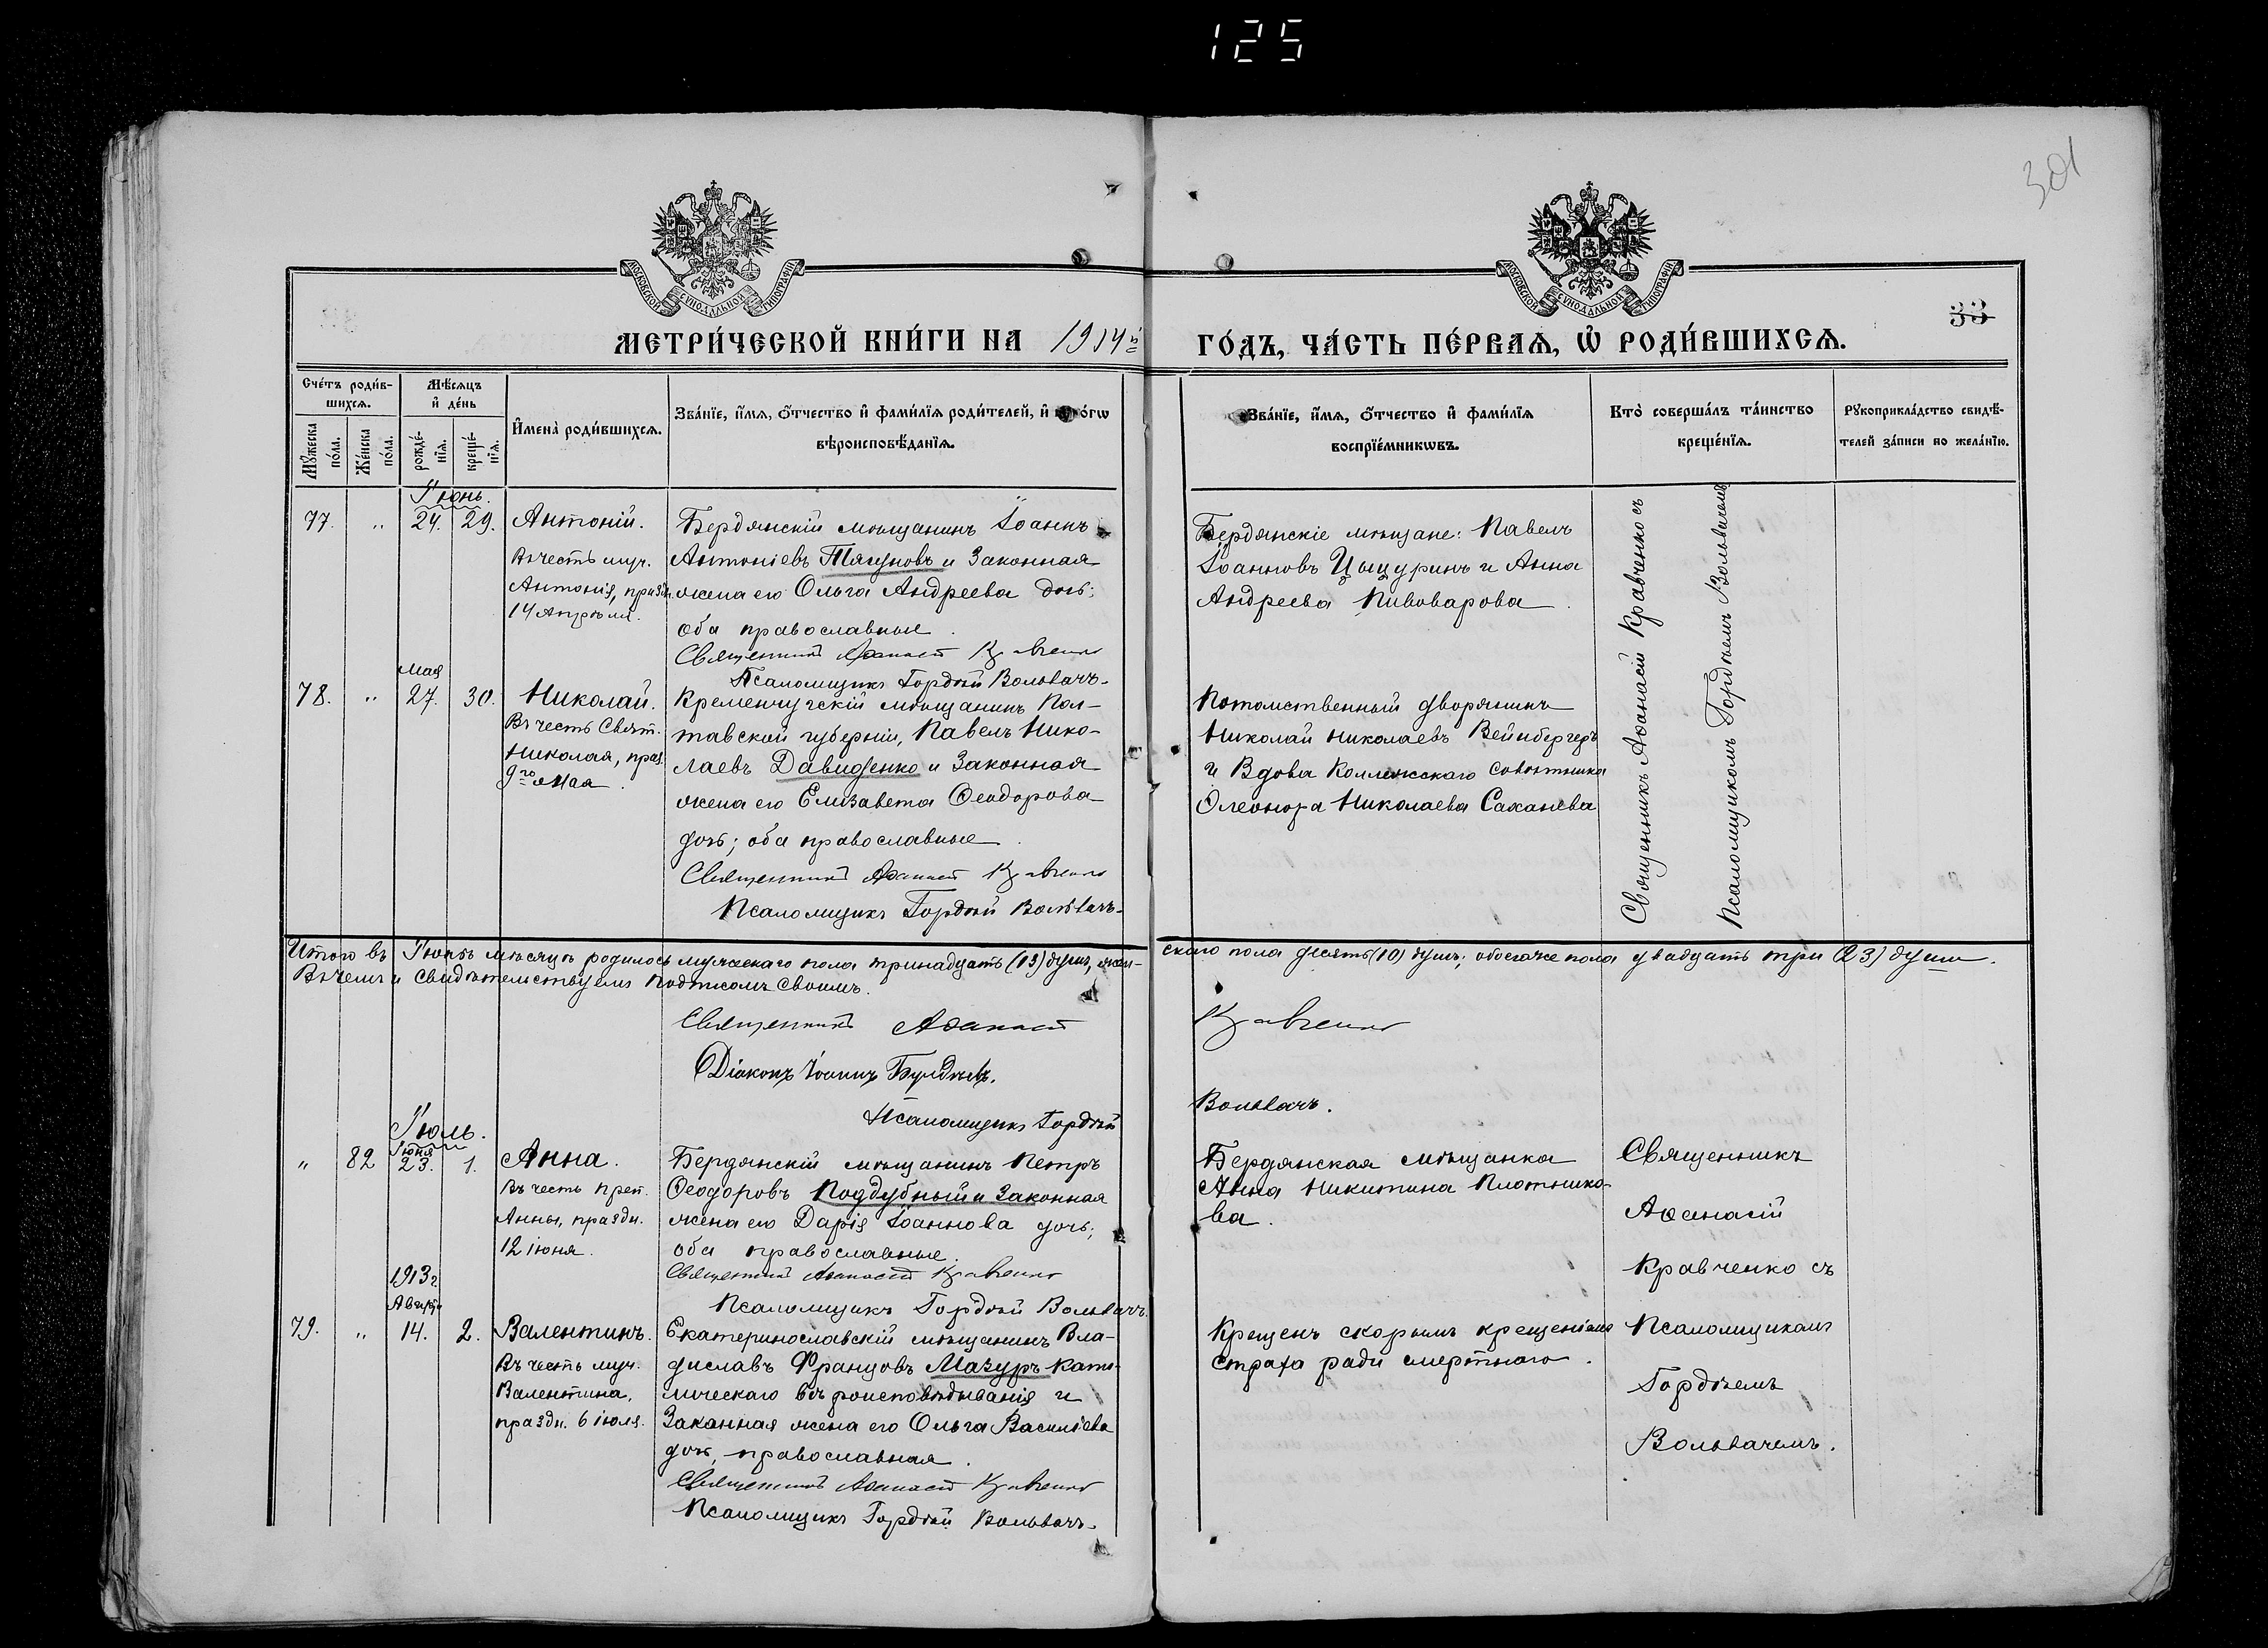 125
301
МОСКОВСКОЙ СѴНОДАЛЬНОЙ ТИПОГРАФІИ
МОСКОВСКОЙ СѴНОДАЛЬНОЙ ТИПОГРАФІИ
33
МЕТРИ́ЧЕСКОЙ КНИ́ГИ НА 1914й
ГО́ДЪ, ЧА́СТЬ ПЕ́РВАѦ, Ѡ҆ РОДИ́ВШИХСѦ.
Сче́тъ роди́в-
шихсѧ.
Мѣ́сѧцъ
и҆ де́нь
Мꙋ́жеска
по́ла.
Же́нска
по́ла.
рожде́-
нїѧ.
креще́-
нїѧ.
И҆мена̀ роди́вшихсѧ.
Зва́нїе, и҆́мѧ, ѻ҆́тчество и҆ фами́лїѧ роди́телей, и҆
вѣроисповѣ́данїѧ.
Зва́нїе, и҆́мѧ, ѻ҆́тчество и҆ фами́лїѧ
воспрїе́мникѡвъ.
Кто̀ соверша́лъ та́инство
креще́нїѧ.
Рꙋкоприкла́дство свидѣ́-
телей за́писи по жела́нїю.
Іюнь.
77. " 24. 29. Антоній.
Въ честь муч.
Антонія, праздн.
14 Апрѣля.
Бердянскій мѣщанинъ Іоаннъ
Антоніевъ Тягуновъ и Законная
жена его Ольга Андреева дочь;
оба православные.
Священникъ Аѳанасій Кравченко
Псаломщикъ Гордѣй Вольвачъ.
Бердянскіе мѣщане: Павелъ
Іоанновъ Цыцуринъ и Анна
Андреева Пивоварова.
Священникъ Аѳанасій Кравченко съ
Псаломщикомъ Гордѣемъ Вольвачемъ
мая
78. " 27. 30. Николай.
Въ честь Свят.
Николая, празд.
9го мая.
Кременчугскій мѣщанинъ Пол-
тавской губерніи, Павелъ Нико-
лаевъ Давиденко и Законная
жена его Елизавета Ѳеодорова
дочь; оба православные.
Священникъ Аѳанасій Кравченко
Псаломщикъ Гордѣй Вольвачъ.
Потомственный дворянинъ
Николай Николаевъ Вейнбергеръ
и Вдова Коллежскаго совѣтника
Олеонора Николаева Саханева
Итого въ Іюнѣ мѣсяцѣ родилось мужескаго пола тринадцать (13) душъ, жен-
скаго пола десять (10) душъ; обоего же пола двадцать три (23) души.
Въ чемъ и свидѣтельствуемъ подписомъ своимъ.
Священникъ Аѳанасій Кравченко
Діаконъ Іоаннъ
Псаломщикъ Гордѣй Вольвачъ.
Іюль.
Іюня
" 82 23. 1. Анна.
Въ честь преп.
Анны, праздн.
12 іюня.
Бердянскій мѣщанинъ Петръ
Ѳеодоровъ Поддубный и Законная
жена его Дарія Іоаннова дочь;
оба православные.
Священникъ Аѳанасій Кравченко
Псаломщикъ Гордѣй Вольвачъ.
Бердянская мѣщанка
Анна Никитина Плотнико-
ва.
Священникъ
Аѳанасій
Кравченко съ
Псаломщикомъ
Гордѣемъ
Вольвачемъ.
1913г.
Августа
79. " 14. 2. Валентинъ.
Въ честь муч.
Валентина,
праздн. 6 іюля.
Екатеринославскій мѣщанинъ Вла-
диславъ Францовъ Мазуръ като-
лическаго вѣроисповѣдыванія и
Законная жена его Ольга Васильева
дочь, православная.
Священникъ Аѳанасій Кравченко
Псаломщикъ Гордѣй Вольвачъ.
Крещенъ скорымъ крещеніемъ
страха ради смертнаго.